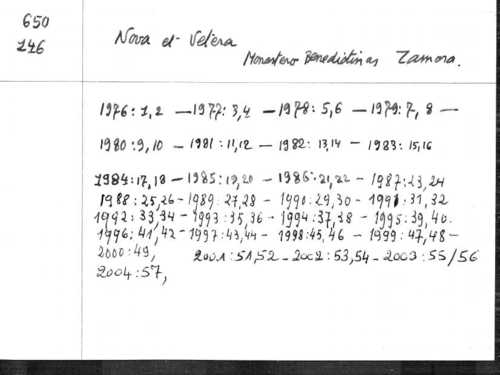 650
146
Nova et Vetera
Monasterio Benedictinas Zamora.
1976:1,2 — 1977:3,4 — 1978:5,6 — 1979:7,8 —
1980:9,10 — 1981:11,12 — 1982:13,14 — 1983:15,16
1984:17,18 — 1985:19,20 — 1986:21,22 — 1987:23,24
1988:25,26 - 1989:27,28 - 1990:29,30 - 1991:31,32
1992:33,34 - 1993:35,36 - 1994:37,38 - 1995:39,40.
1996:41,42 - 1997:43,44 - 1998:45,46 - 1999:47,48 -
2000:49, 2001:51,52 - 2002:53,54 - 2003:55/56
2004:57,